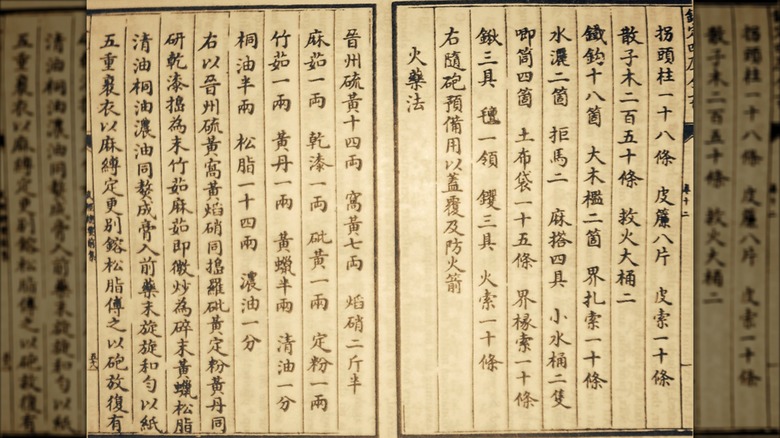 拐頭柱一十八條 皮簾八片 皮索一十條
散子木二百五十條 救火大桶二
鐵鈎十八箇 大木檻二箇 界扎索一十條
水濃二箇 拒馬二 麻搭四具 小水桶二隻
唧筒四箇 土布袋一十五條 界椽索一十條
鍬三具 氊一領 钁三具 火索一十條
右隨砲預備用以蓋覆及防火箭
火藥法
卷十二
晉州硫黃十四兩 窩黃七兩 焰硝二斤半
麻茹一兩 乾漆一兩 砒黃一兩 定粉一兩
竹茹一兩 黃丹一兩 黃蠟半兩 清油一分
桐油半兩 松脂一十四兩 濃油一分
右以晉州硫黃窩黃焰硝同搗羅砒黃定粉黃丹同
研乾漆搗為末竹茹麻茹即微炒為碎末黃蠟松脂
清油桐油濃油同熬成膏入前藥末旋旋和勻以紙
五重裹衣以麻縛定更別鎔松脂傅之以砲放復有